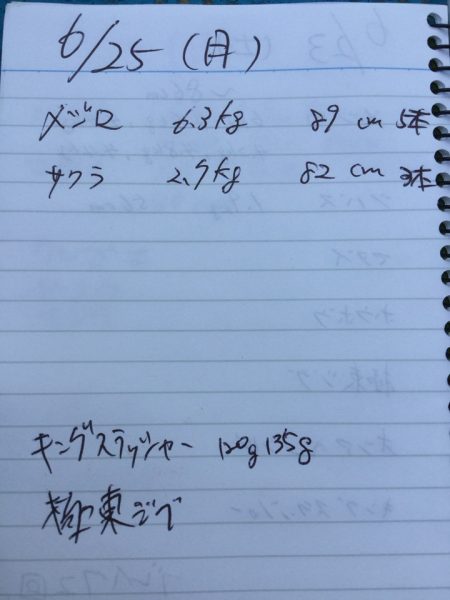 6/25 (日)
メジロ 6.3kg 89cm 5本
サワラ 2.9kg 82cm 3本
キングスラッシャー 120g 135g
極東ジグ